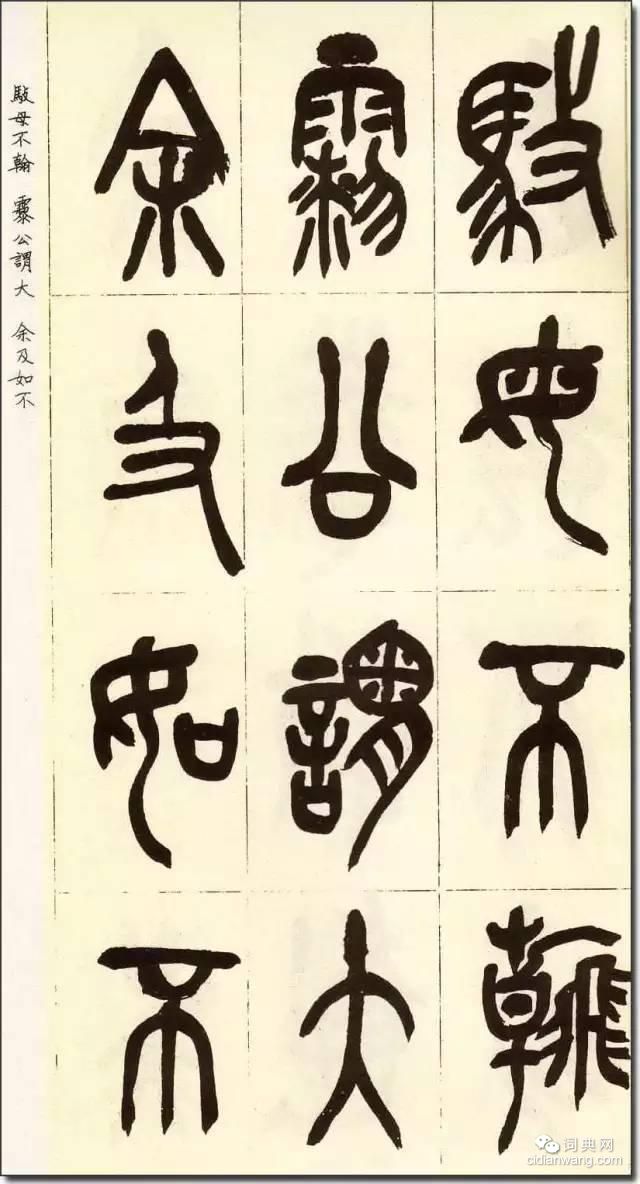 駇母不翰
霥公謂大
余及如不
駇母不翰 霥公謂大 余及如不
词典网
cidianwang.com